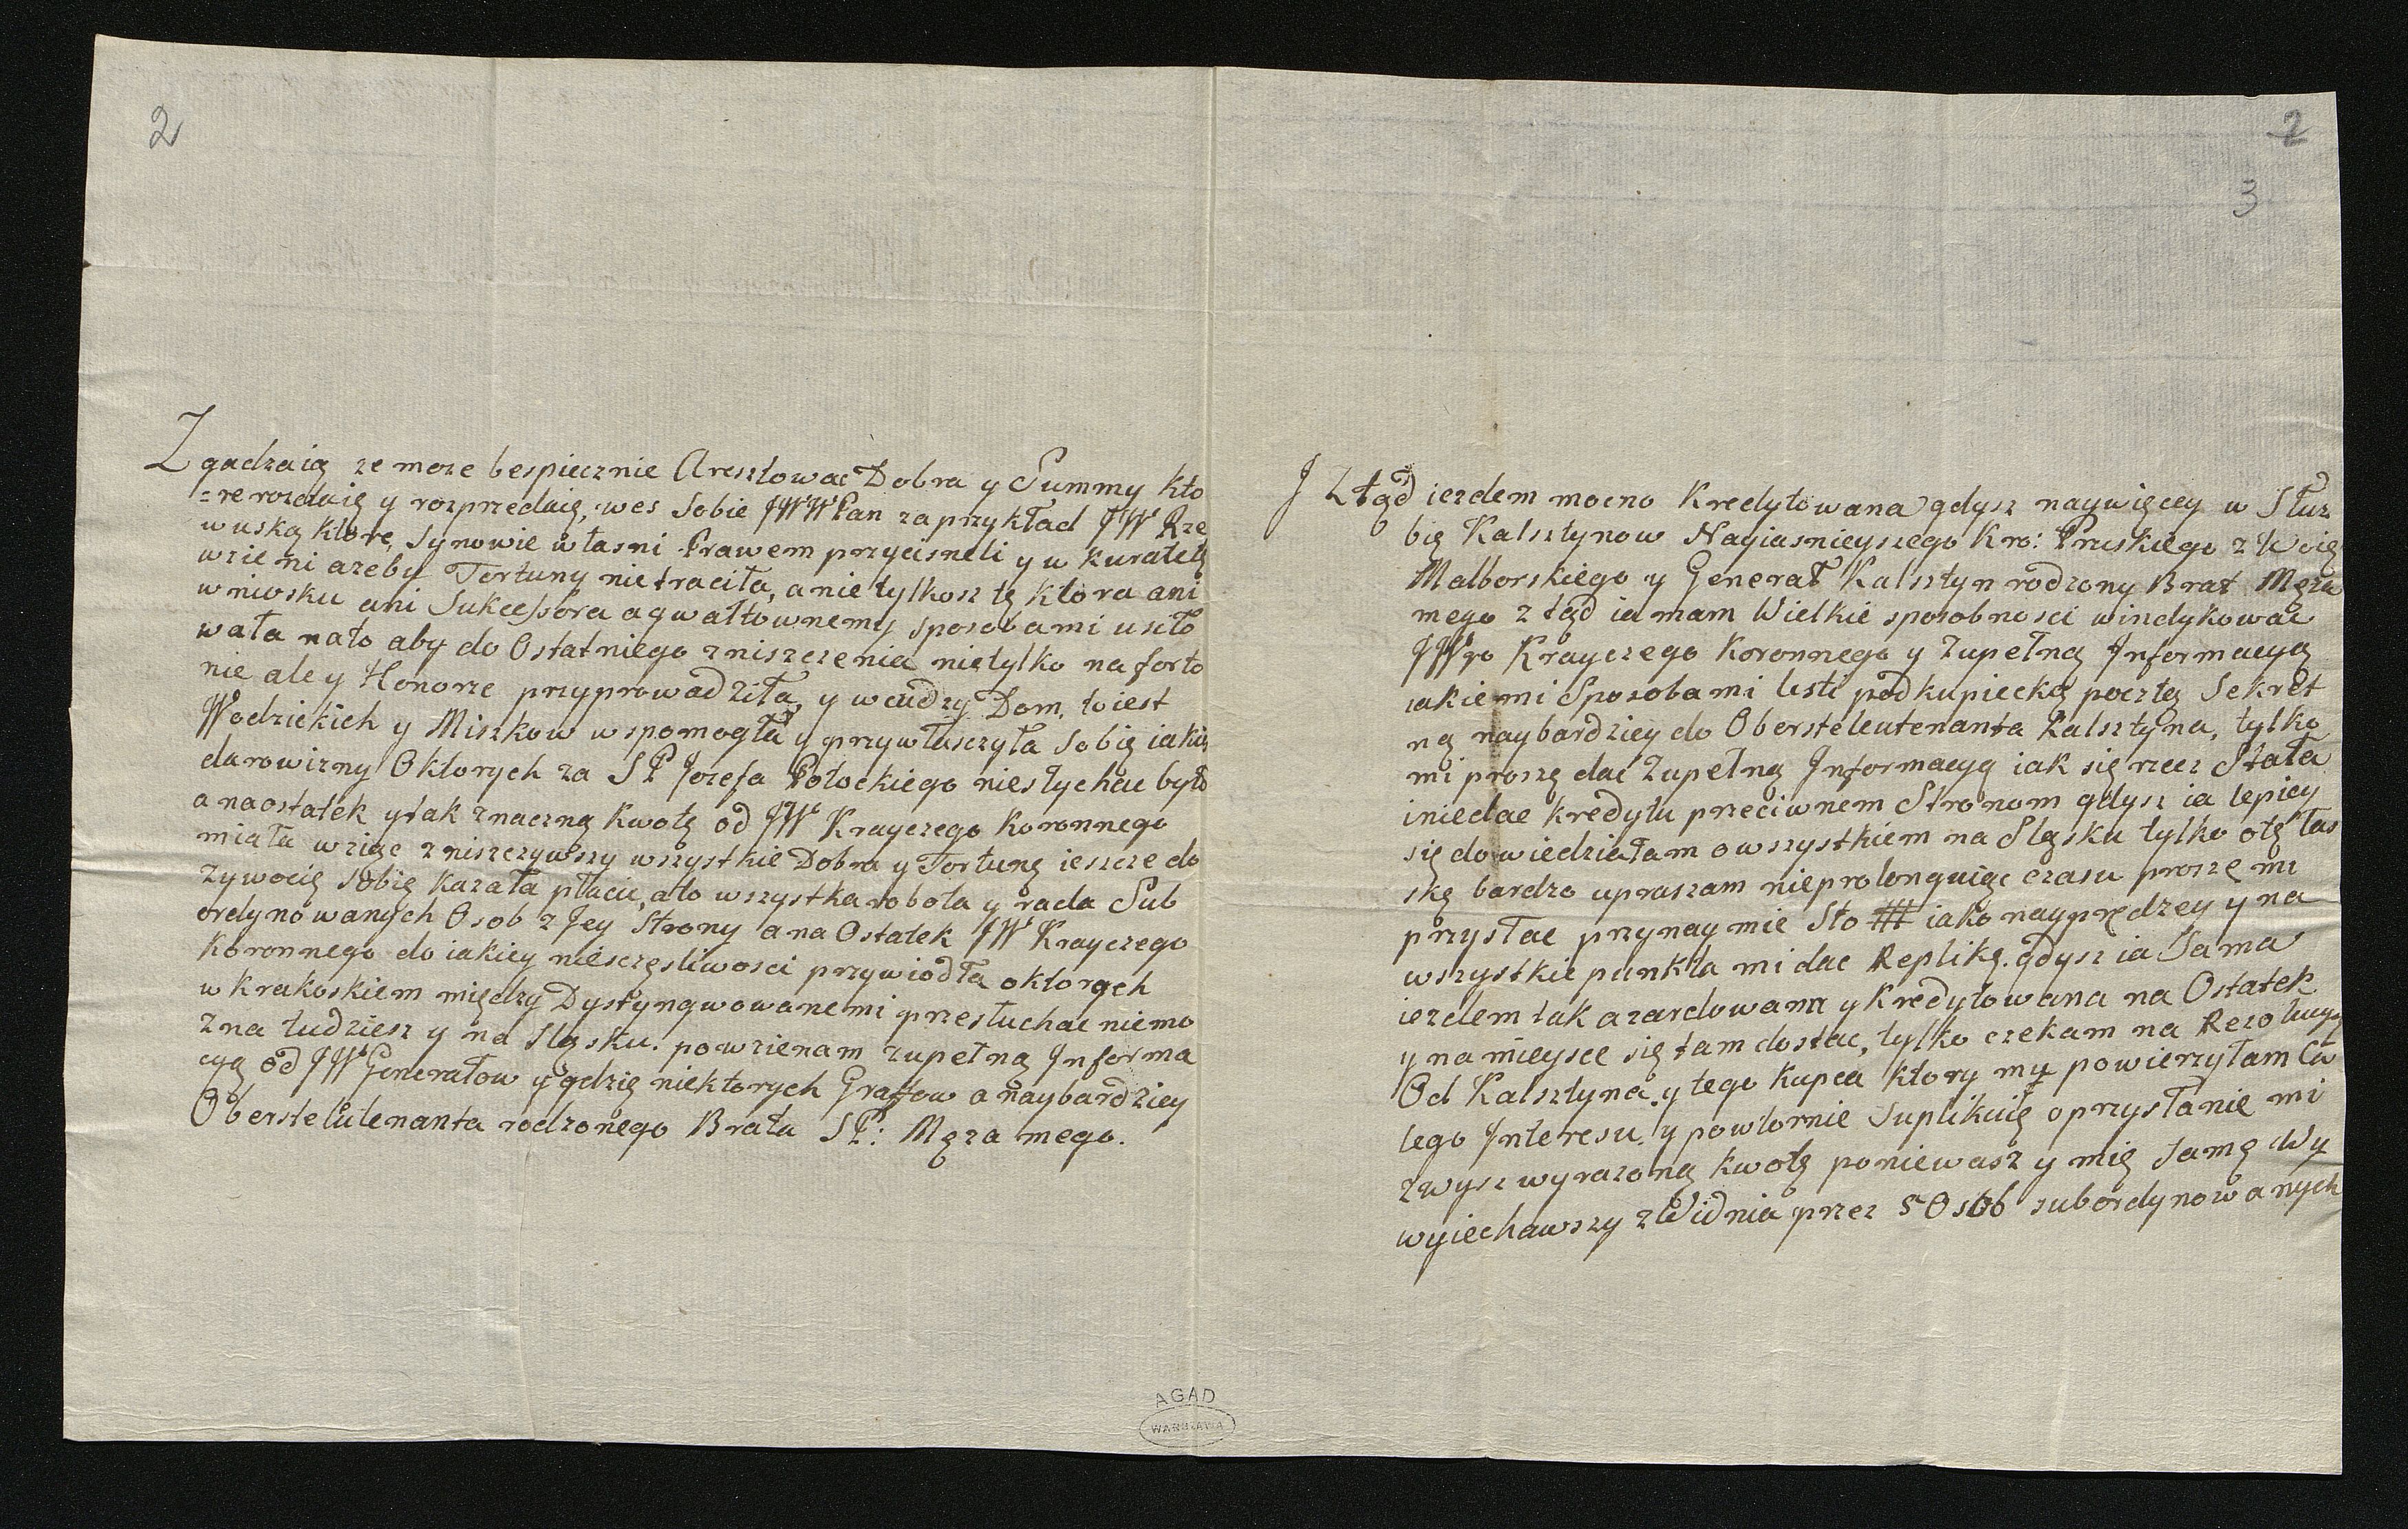 2
Zgadzaią ze może bespiecznie Aresztowac Dobra y Summy kto
=re rozdaię y rozprzedaię, wes Sobie JWWPan zaprzykład JW Rze
wuską ktorę, Synowie własni Prawem przycisneli y w kuratelę
wzieni azeby Fortuny nietraciła, a nie tylkosz tę ktora ani
wniosku ani Sukcessora a gwałtownemy sposobami usiło
wała nato aby do Ostatniego zniszczenia nietylko na forto
nie ale y Honorze przyprowadziła, y wcudzy Dom, to iest
Wodzickich y Miszkow wspomogła y przywłaszczyła Sobię iakiś
darowizny Oktorych za SP Jozefa Potockiego niesłychac było
a naostatek ytak znaczną kwotę od JW Krayczego Koronnego
miała wziąc zniszczywszy wszystkie Dobra y Fortunę ieszcze do
zywocię Sobię kazała płacic, ato wszystka robota y rada Sub
ordynowanych Osob z Jey Strony a na Ostatek JW Krayczego
Koronnego do iakiey niesczęsliwosci przywiodła oktorych
w Krakoskiem między Dystyngwowanemi przesłuchac niemo
zna tudziesz y na Sląsku. powzienam zupełną Informa
cyą od JW Generałow y gdzię niektorych Graffow a naybardziey
Obersteleutenanta rodzonego Brata SP: Męza mego.
AGAD
WARSZAWA
2
3
J Ztąd iezdem mocno Kredytowana gdysz naywięcey w Słuz
bię Kalsztynow Nayiasnieyszego Kro: Pruskiego z Woię
Malborskiego y Generał Kalsztyn rodzony Brat Męza
mego z tąd ia mam Wielkie sposobnosci windykowac
JWgo Krayczego Koronnego y Zupełną Informacyą
iakiemi Sposobami listi pod kupiecką pocztą Sekret
ną naybardziey do Obersteleutenanta Kalsztyna, tylko
mi proszę dac Zupełną Informacyą iak się rzecz Stała
iniedac kredytu przeciwnem Stronom gdysz ia lepiey
się dowiedziałam owszystkiem na Sląsku tylko otę łas
kę bardzo upraszam nieprolonguiąc czasu proszę mi
przysłac przynaymie Sto # iako nayprędzey y na
wszystkie punkta mi dac Replikę. gdysz ia Sama
iezdem tak azardowana y Kredytowana na Ostatek
y na mieysce się tam dostac, tylko czekam na Rezolucyą
Od Kalsztyna y tego Kupca ktory my powierzyłam Ca
łego Interesu, y powtornie Suplikuię oprzysłanie mi
zwysz wyrazoną kwotę poniewasz y mię Samę Wy
wyiechawszy z Widnia przez 5 Osob subordynowanych